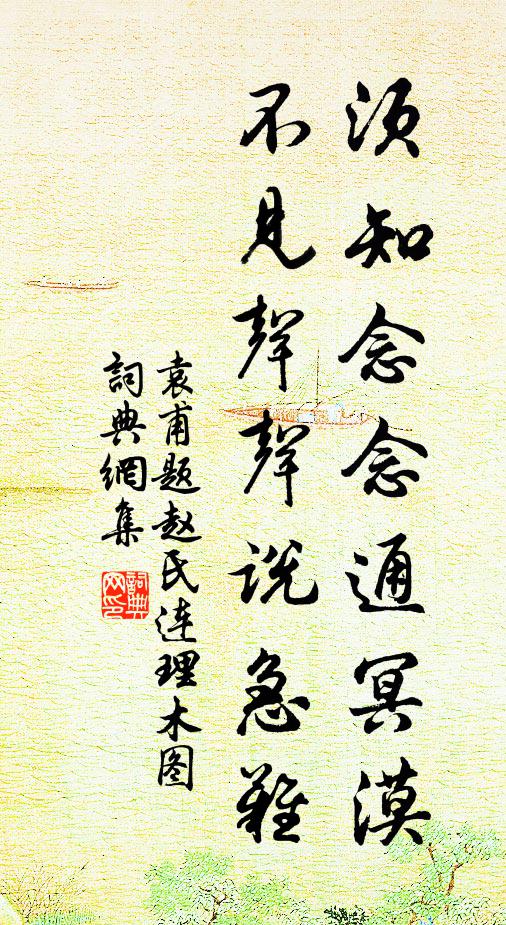 須知念念通冥漠
不見聲聲说急難
袁甫题赵氏连理木图
詞典網集
詞典
网印